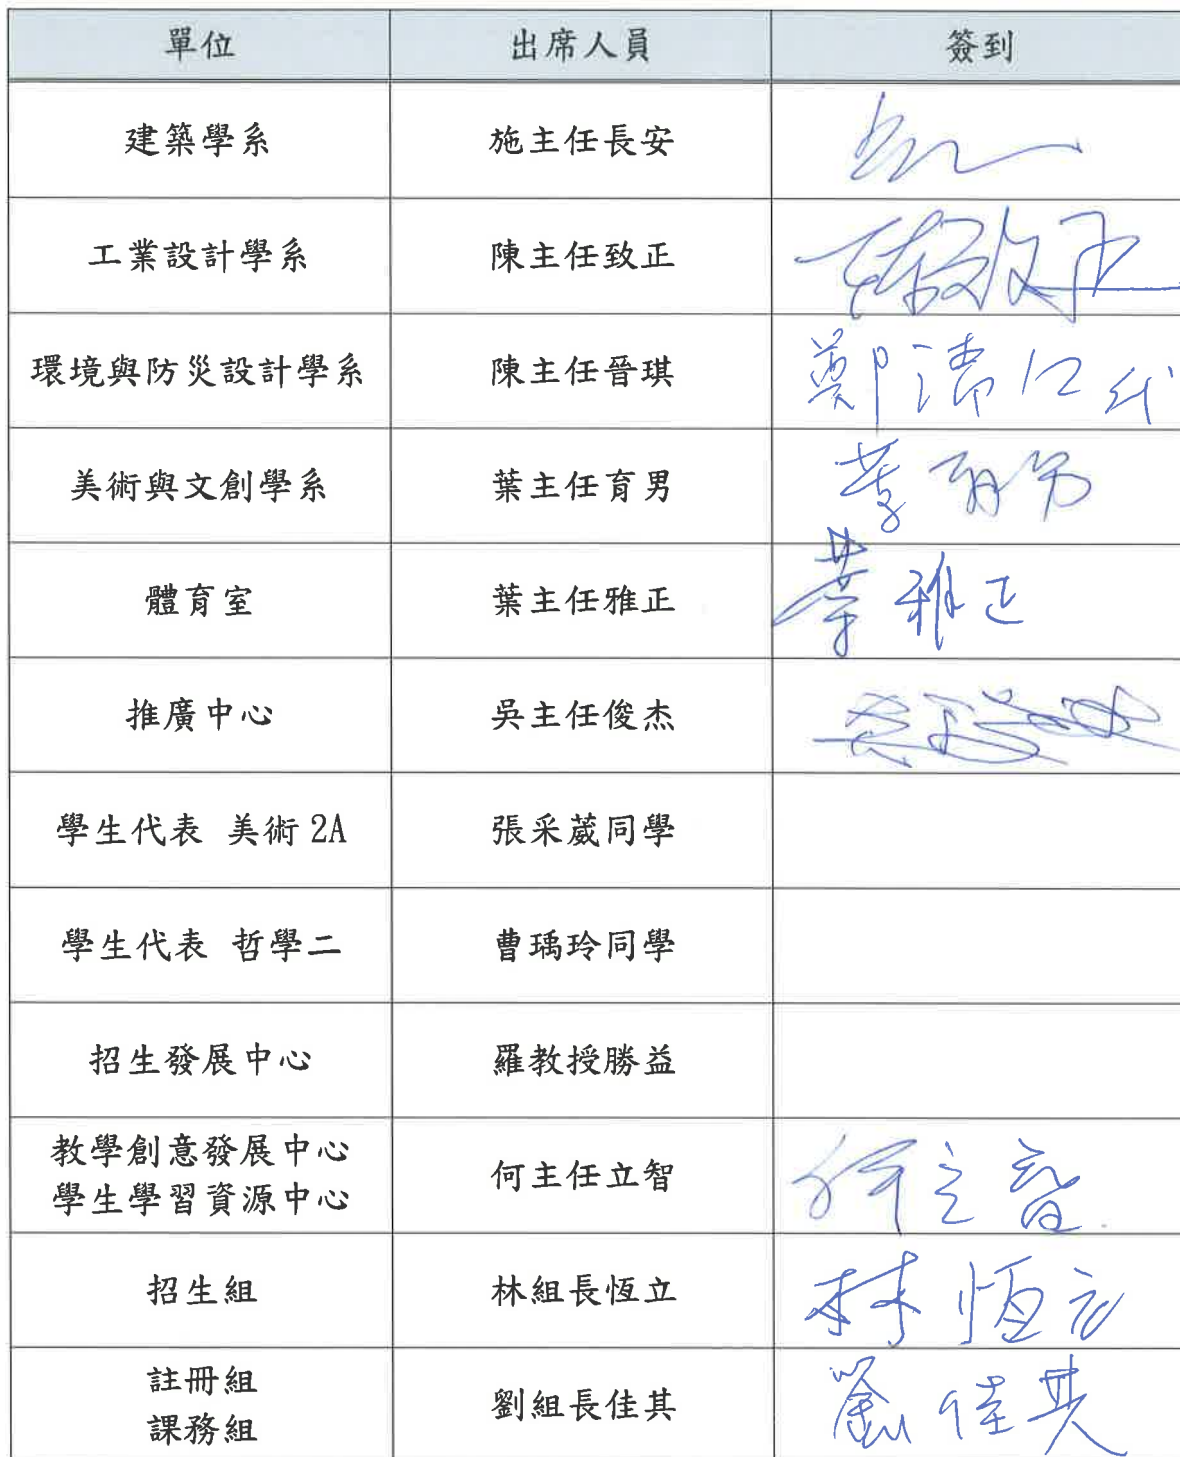 單位 出席人員 簽到
建築學系 施主任長安
工業設計學系 陳主任致正 陳致正
環境與防災設計學系 陳主任晉琪 鄭清江代
美術與文創學系 葉主任育男 葉育男
體育室 葉主任雅正 葉雅正
推廣中心 吳主任俊杰
學生代表 美術2A 張采葳同學
學生代表 哲學二 曹瑀玲同學
招生發展中心 羅教授勝益
教學創意發展中心
學生學習資源中心 何主任立智 何立智
招生組 林組長恆立 林恆立
註冊組
課務組 劉組長佳其 劉佳其